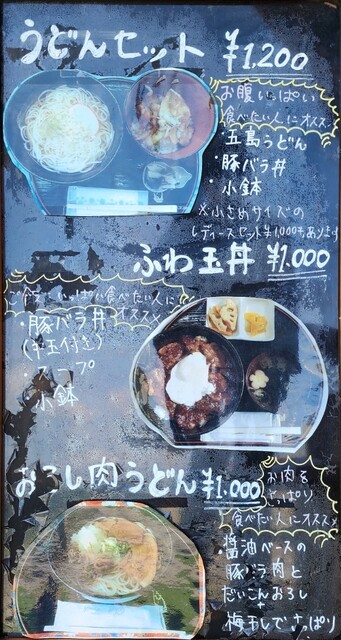 うどんセット ¥1,200
お腹いっぱい
食べたい人にオススメ
・五島うどん
・豚バラ丼
・小鉢
※小さめサイズの
レディースセット¥1,000もあります
ふわ玉丼 ¥1,000
ご飯をいっぱい食べたい人に
オススメ
・豚バラ丼
(半玉付き)
・スープ
・小鉢
おろし肉うどん ¥1,000
お肉を
さっぱり
食べたい人にオススメ
・醤油ベースの
豚バラ肉と
だいこんおろし
+
梅干しでさっぱり